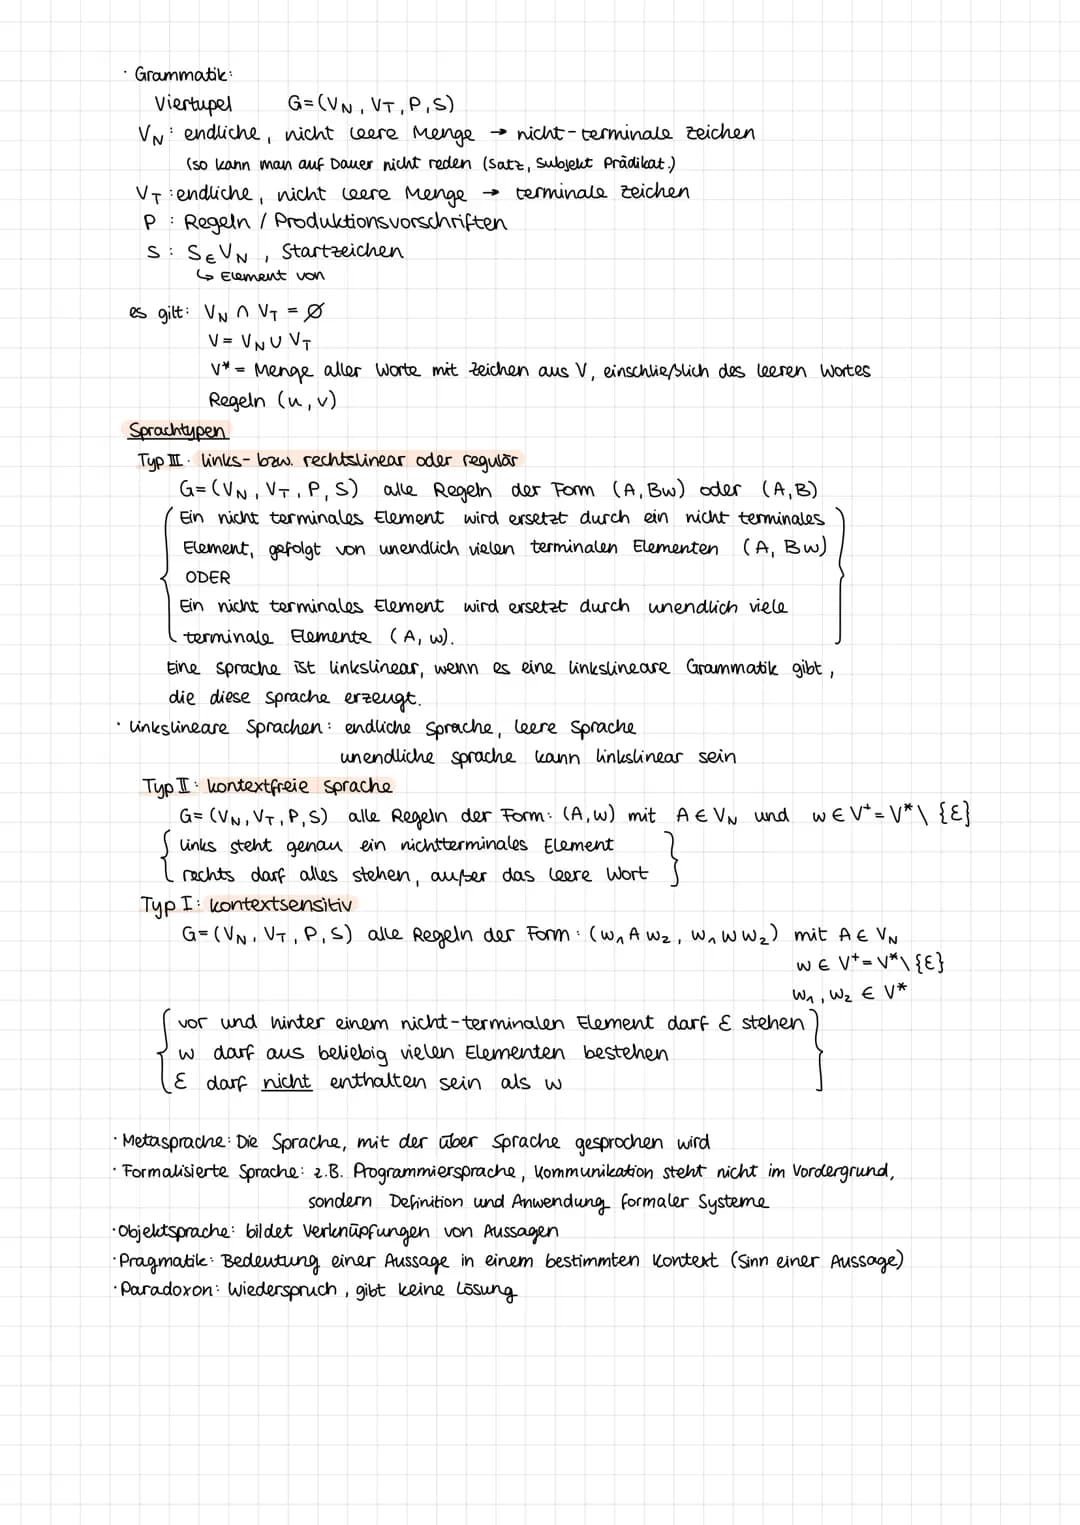 · Grammatik:
Viertupel G=(V_N, V_T, P, S)
V_N: endliche, nicht leere Menge → nicht-terminale Zeichen
(so kann man auf Dauer nicht reden (Satz, Subjekt Prädikat.)
V_T: endliche, nicht leere Menge → terminale Zeichen
P : Regeln / Produktionsvorschriften
S : S∈V_N, Startzeichen
↳ Element von
es gilt: V_N ∩ V_T = ∅
V = V_N ∪ V_T
V* = Menge aller Worte mit Zeichen aus V, einschließlich des leeren Wortes
Regeln (u,v)
Sprachtypen
Typ III: links- bzw. rechtslinear oder regulär
G=(V_N, V_T, P, S) alle Regeln der Form (A,Bw) oder (A,B)
Ein nicht terminales Element wird ersetzt durch ein nicht terminales
Element, gefolgt von unendlich vielen terminalen Elementen (A, Bw)
ODER
Ein nicht terminales Element wird ersetzt durch unendlich viele
terminale Elemente (A, w).
Eine Sprache ist linkslinear, wenn es eine linkslineare Grammatik gibt,
die diese Sprache erzeugt.
· linkslineare Sprachen: endliche Sprache, leere Sprache
unendliche Sprache kann linkslinear sein
Typ II: kontextfreie Sprache
G=(V_N, V_T, P, S) alle Regeln der Form: (A,w) mit A∈V_N und w∈V⁺=V*\{ε}
links steht genau ein nichtterminales Element
rechts darf alles stehen, außer das leere Wort
Typ I: kontextsensitiv
G=(V_N, V_T, P, S) alle Regeln der Form: (w₁Aw₂, w₁ww₂) mit A∈V_N
w∈V⁺=V*\{ε}
w₁, w₂ ∈ V*
vor und hinter einem nicht-terminalen Element darf ε stehen
w darf aus beliebig vielen Elementen bestehen
ε darf nicht enthalten sein als w
· Metasprache: Die Sprache, mit der über Sprache gesprochen wird
· Formalisierte Sprache: z.B. Programmiersprache, Kommunikation steht nicht im Vordergrund,
sondern Definition und Anwendung formaler Systeme
· Objektsprache: bildet Verknüpfungen von Aussagen
· Pragmatik: Bedeutung einer Aussage in einem bestimmten Kontext (Sinn einer Aussage)
· Paradoxon: Wiederspruch, gibt keine Lösung